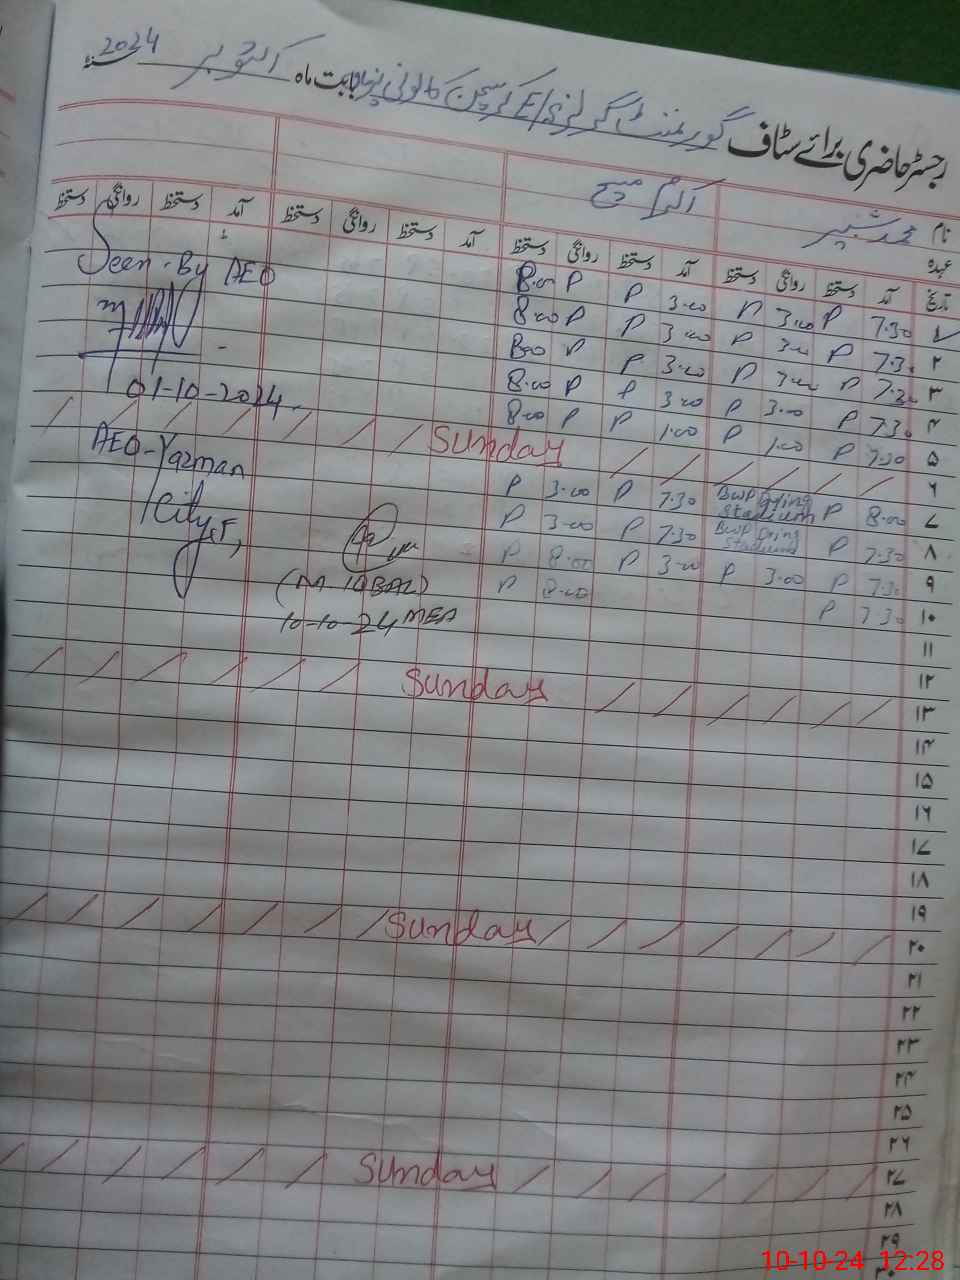 رجسٹر حاضری برائے سٹاف گورنمنٹ گرلز E/S کرسچن کالونی یزمان بابت ماہ اکتوبر سنہ 2024
نام محمد شبیر اکرم مسیح
عہدہ
تاریخ آمد دستخط روانگی دستخط آمد دستخط روانگی دستخط آمد دستخط روانگی دستخط آمد دستخط روانگی دستخط
۱ 7.30 P 3.00 P 3.00 P P 8.00
۲ 7.30 P 3.00 P 3.00 P P 8.00
۳ 7.30 P 3.00 P 3.00 P P 8.00
۴ 7.30 P 3.00 P 3.00 P P 8.00
۵ 7.30 P 1.00 P 1.00 P P 8.00
۶ Sunday
۷ 8.00 P Bwp Dring Stadium 7.30 P 3.00 P
۸ 7.30 P Bwp Dring Stadium 7.30 P 3.00 P
۹ 7.30 P 3.00 P 3.00 P 8.00 P
۱۰ 7.30 P 8.00 P
۱۱
۱۲
۱۳ Sunday
۱۴
۱۵
۱۶
۱۷
۱۸
۱۹
۲۰ Sunday
۲۱
۲۲
۲۳
۲۴
۲۵
۲۶
۲۷ Sunday
۲۸
۲۹
۳۰
Seen By AEO
01-10-2024
AEO-Yazman
City
(M IQBAL)
10-10-24 MEA
10-10-24 12:28